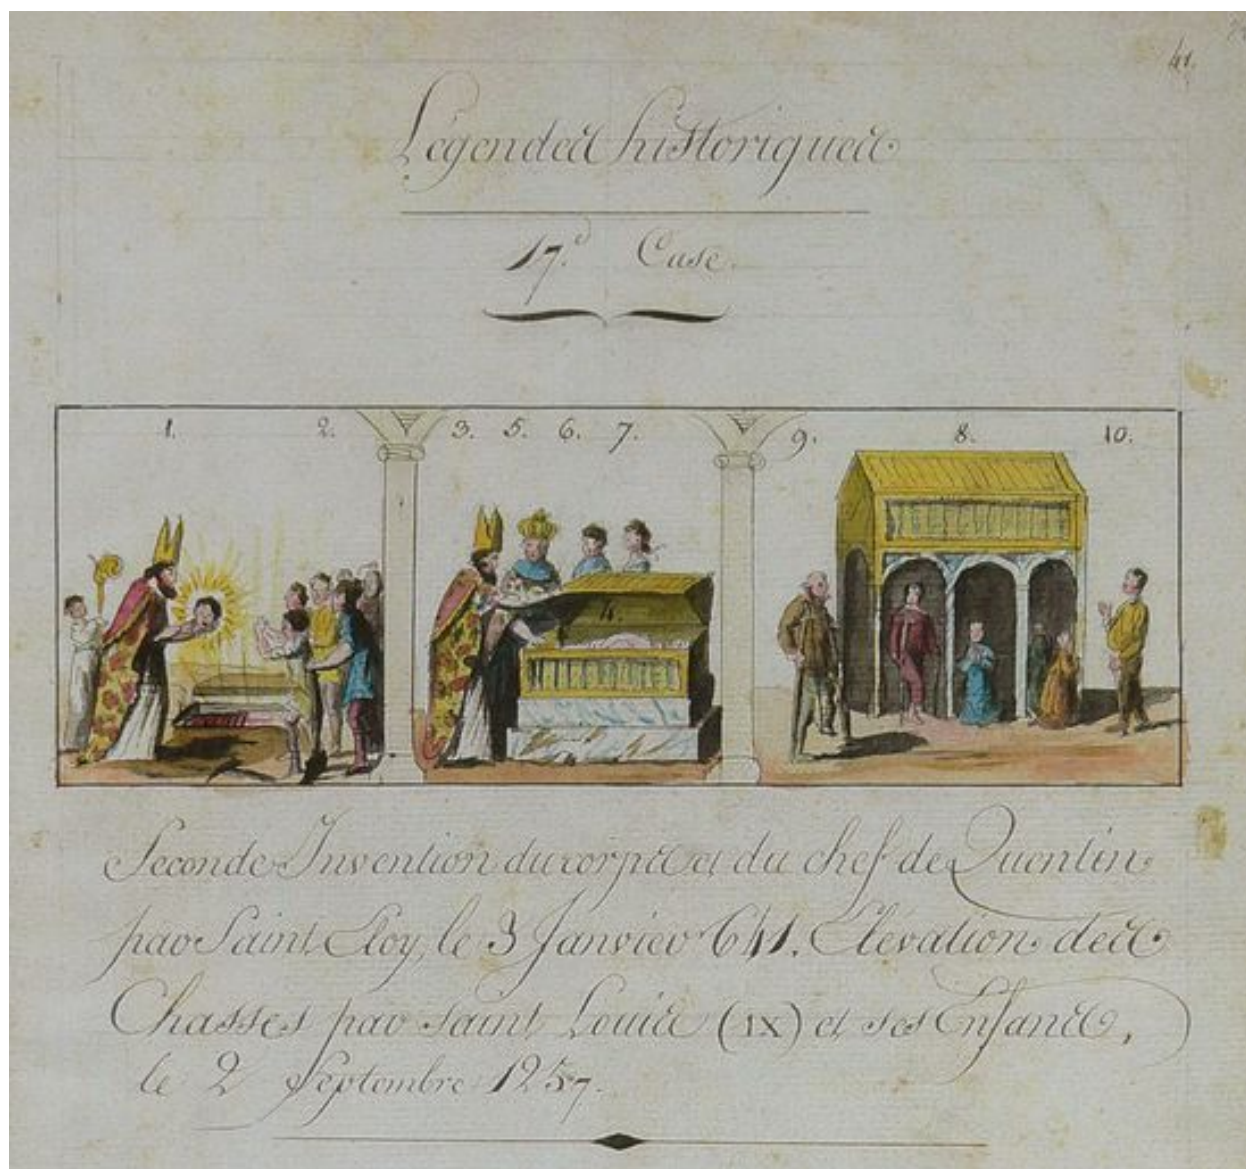 41.
Légendes historiques
17e Case.
1. 2. 3. 5. 6. 7. 9. 8. 10.
4.
Seconde Invention du corps et du chef de Quentin
par Saint Eloy, le 3 Janvier 641. Elévation des
Chasses par Saint Louis (IX) et ses Enfans,
le 2 Septembre 1257.